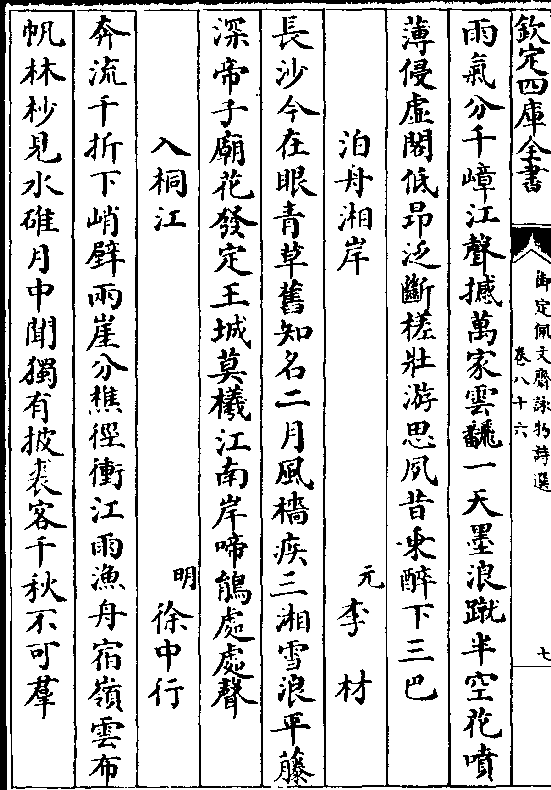 欽定四庫全書
御定佩文齋詠物詩選
卷八十六
七
雨氣分千嶂江聲撼萬家雲飜一天墨浪蹴半空花噴
薄侵虛閣低昂泛斷槎壯游思夙昔乗醉下三巴
泊舟湘岸
元李材
長沙今在眼青草舊知名二月風檣疾三湘雪浪平藤
深帝子廟花發定王城莫檥江南岸啼鵑處處聲
入桐江
明徐中行
奔流千折下峭壁兩崖分樵徑衝江雨漁舟宿嶺雲布
帆林杪見水碓月中聞獨有披裘客千秋不可羣